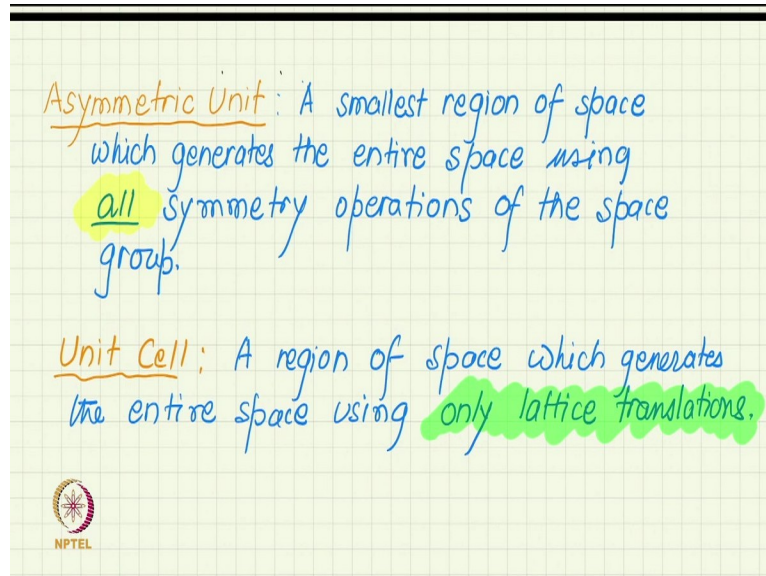 Asymmetric Unit: A smallest region of space
which generates the entire space using
all symmetry operations of the space
group.
Unit Cell: A region of space which generates
the entire space using only lattice translations.
NPTEL